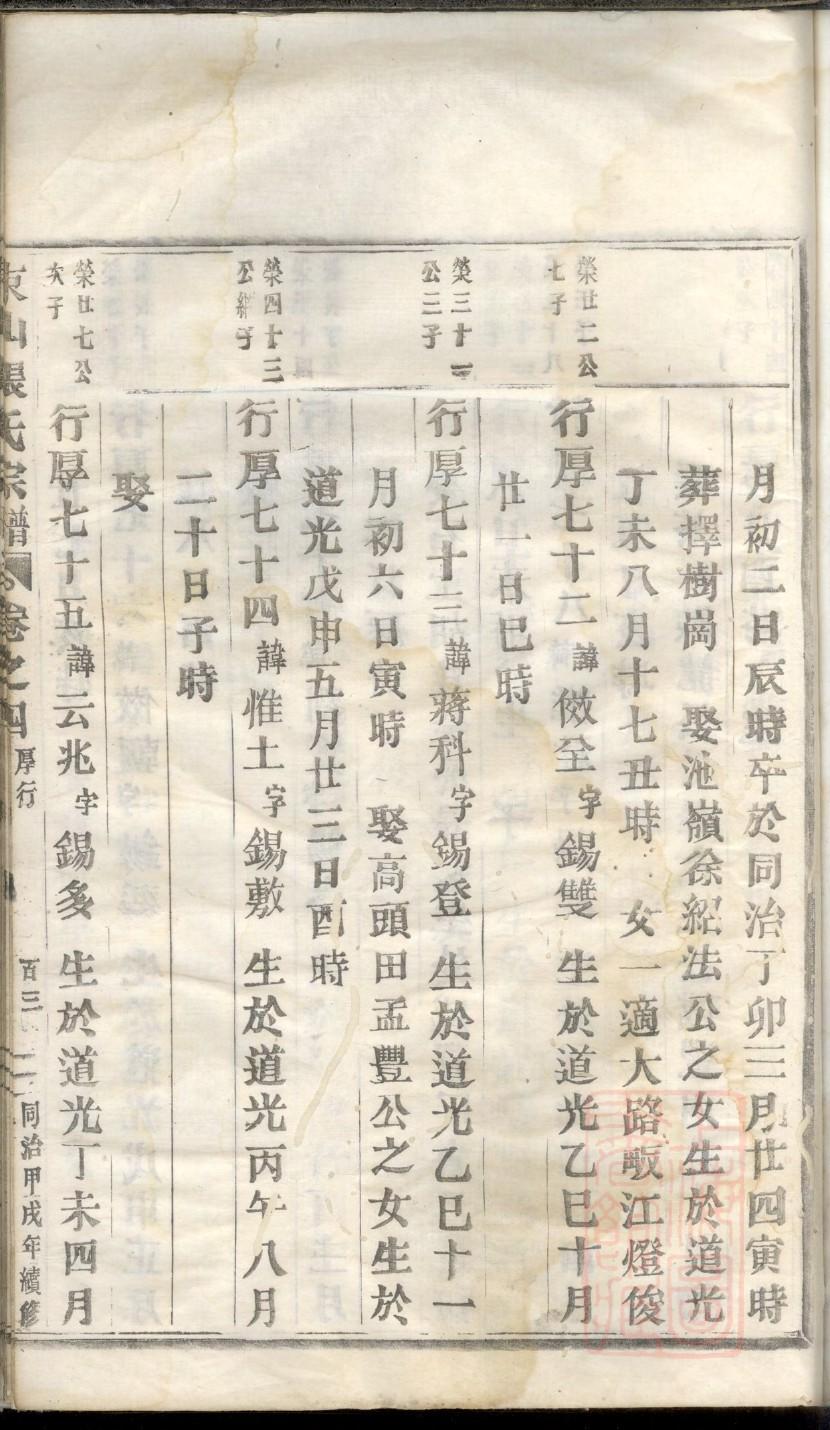 月初二日辰時卒於同治丁卯三月廿四寅時
葬擇樹崗 娶池嶺徐紹法公之女生於道光
丁未八月十七丑時 女一適大路畈江燈俊
榮廿二公
七子
行厚七十二諱傚全字錫雙 生於道光乙巳十月
廿一日巳時
榮三十一
公三子
行厚七十三諱蔣科字錫登 生於道光乙巳十一
月初六日寅時 娶高頭田孟豐公之女生於
道光戊申五月廿三日酉時
榮四十三
公繼子
行厚七十四諱惟土字錫敷 生於道光丙午八月
二十日子時
娶
榮廿七公
次子
行厚七十五諱云兆字錫多 生於道光丁未四月
東山張氏宗譜 卷之四 厚行 百三 同治甲戌年續修